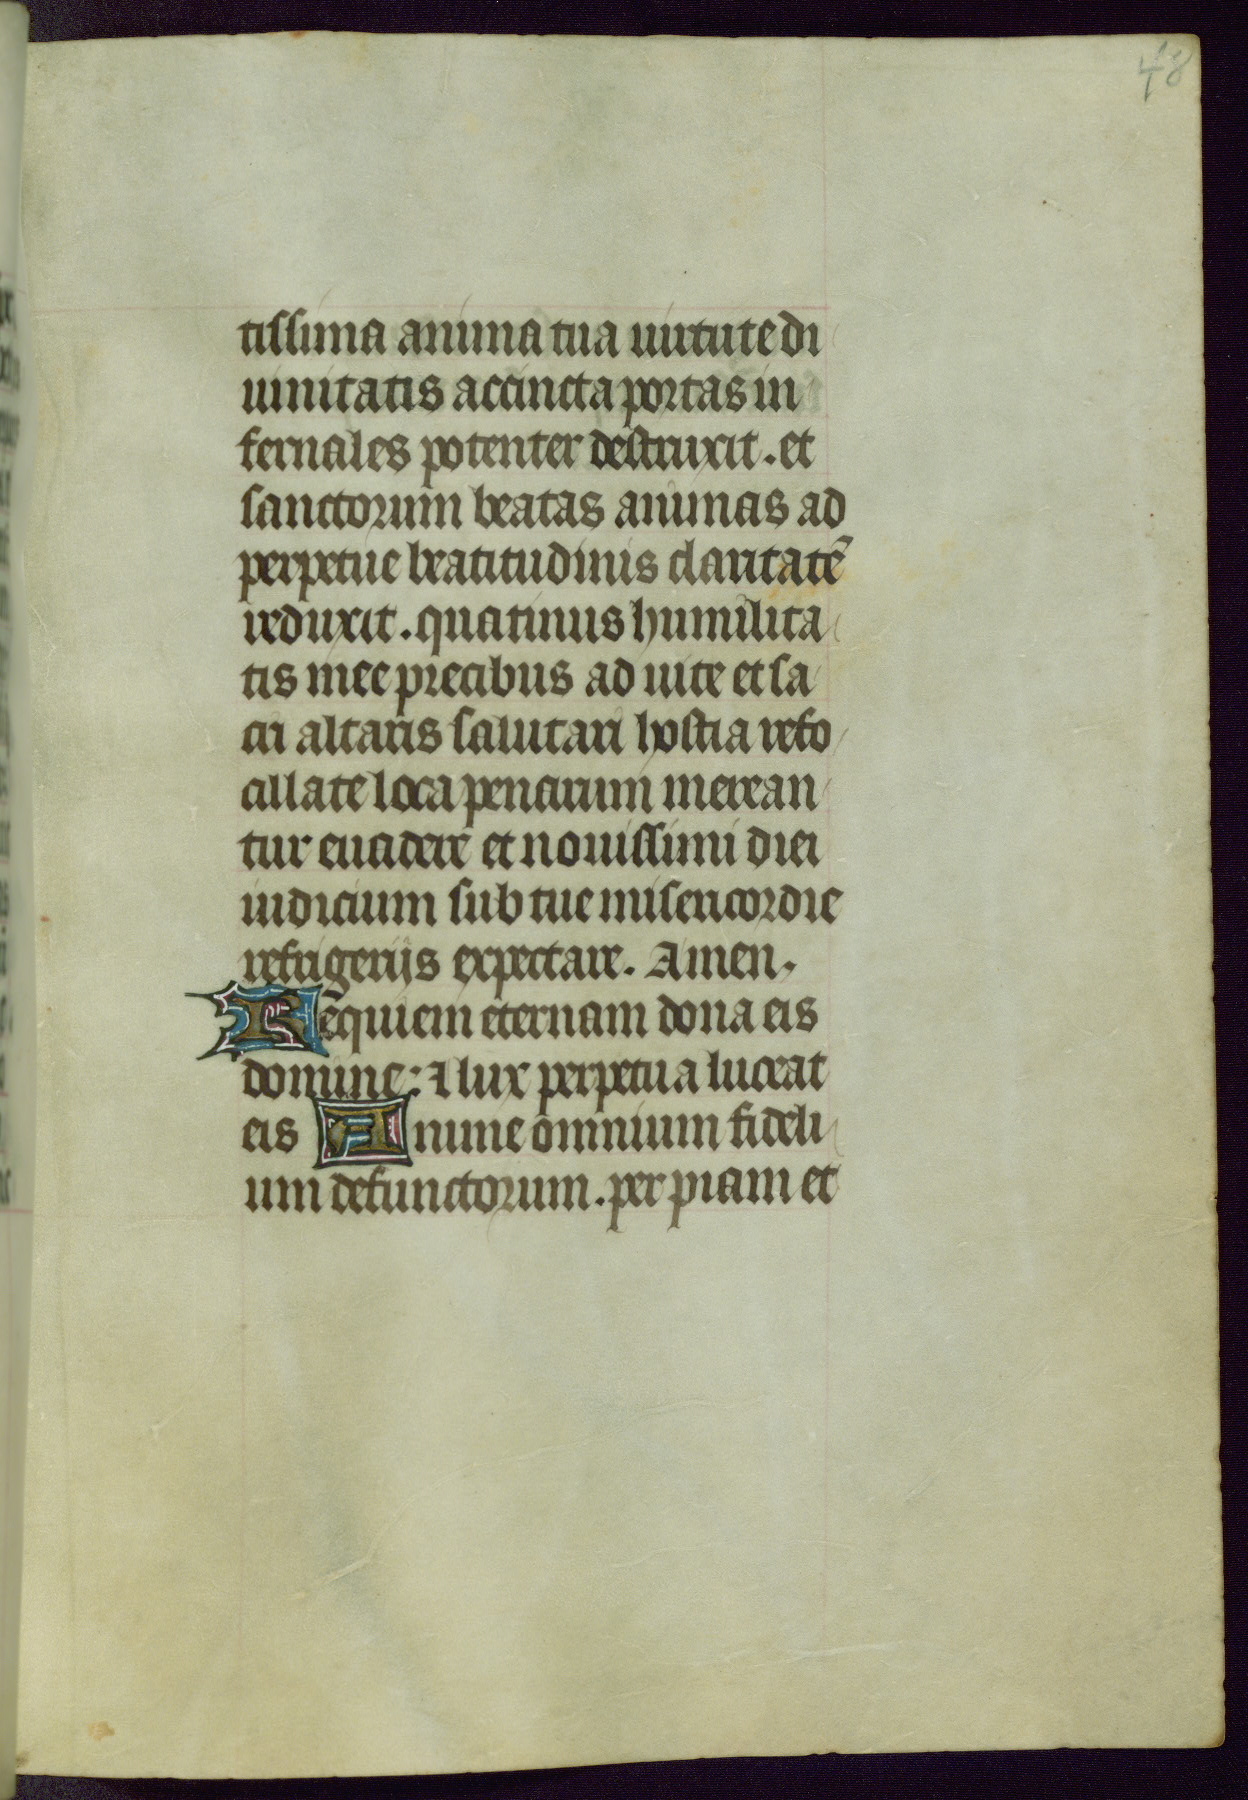 48
tissima anima tua uirtute di
uinitatis accincta portas in
fernales potenter destruxit. et
sanctorum beatas animas ad
perpetue beatitudinis claritatē
reduxit. quatinus humilita
tis mee precibus ad uite et sa
cri altaris salutari hostia refo
cillate loca penarum merean
tur euadere et nouissimi diei
iudicium sub tue misericordie
refrigerijs expectare. Amen.
Requiem eternam dona eis
domine: ⁊ lux perpetua luceat
eis Anime omnium fideli
um defunctorum. per piam et